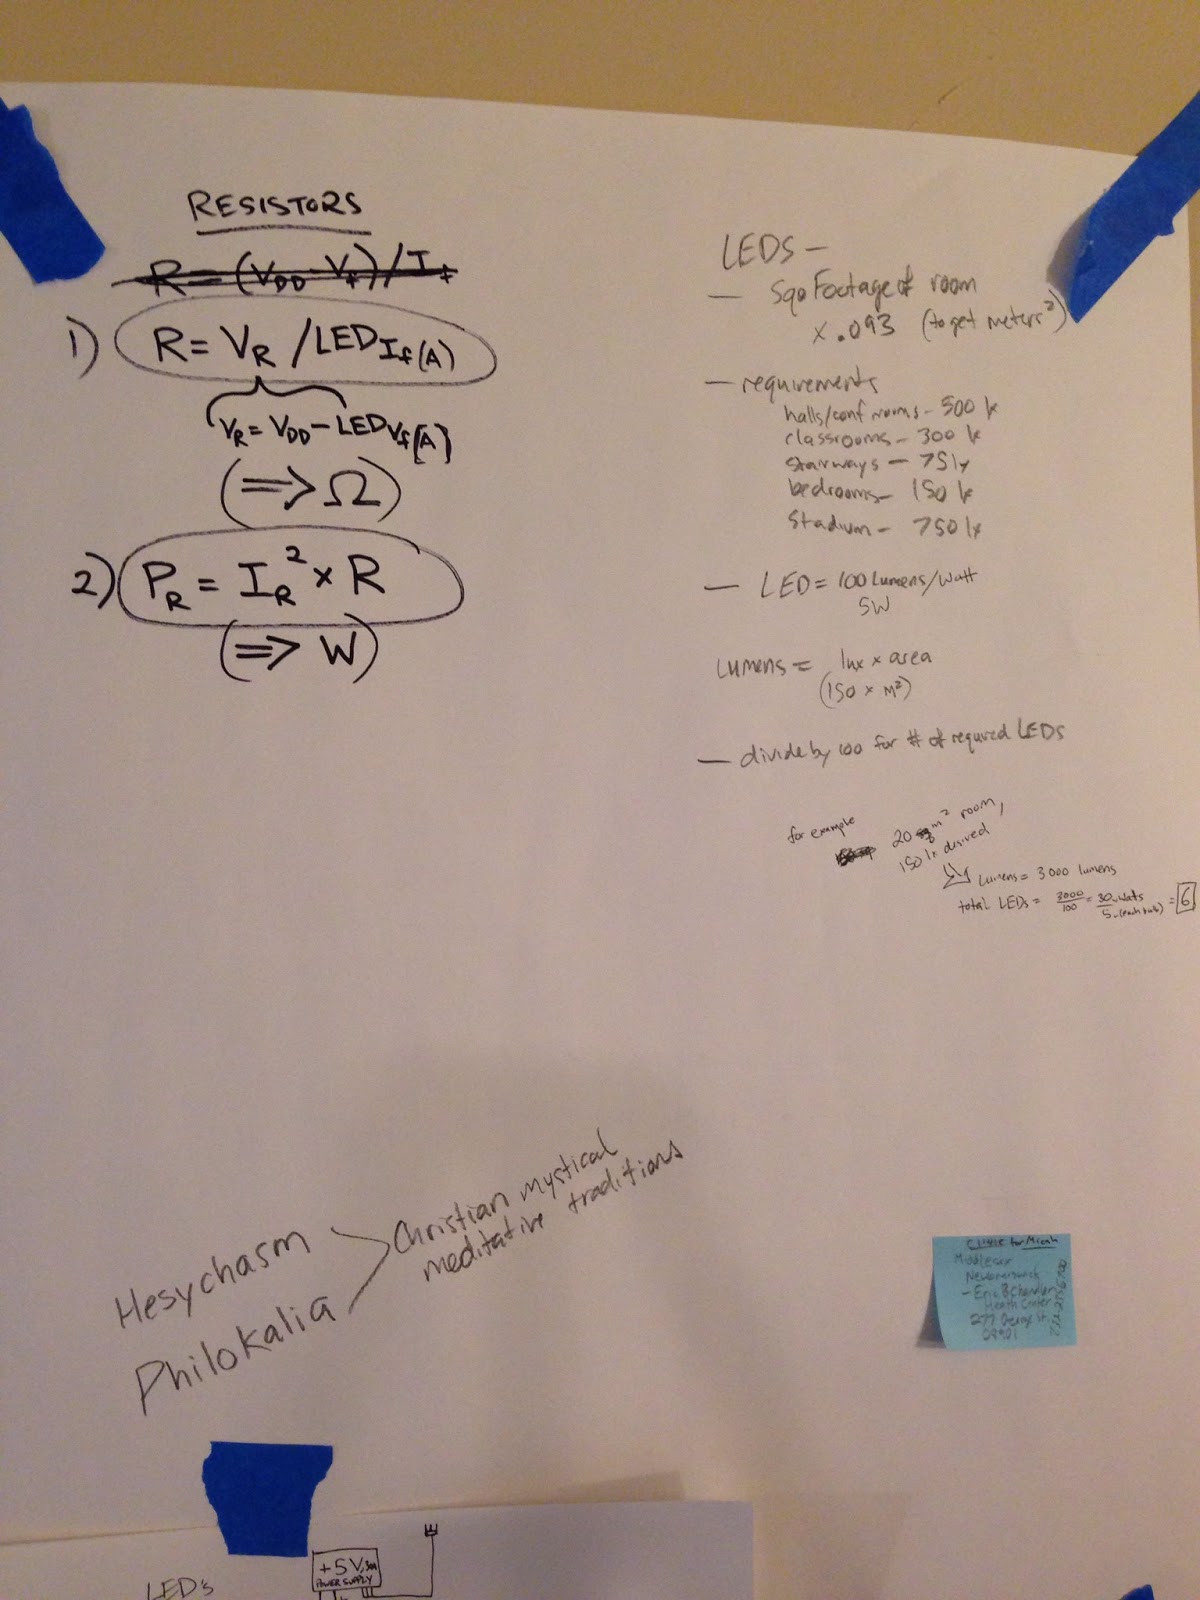 RESISTORS
R = (VDD - Vf) / If
1) R = VR / LED If(A)
VR = VDD - LED Vf[A]
(=> Ω)
2) PR = IR² × R
(=> W)
LEDS -
- Sqo Footage of room
x .093 (to get meters²)
- requirements
halls/conf rooms - 500 lx
classrooms - 300 lx
stairways - 75 lx
bedrooms - 150 lx
Stadium - 750 lx
- LED = 100 Lumens/Watt
5W
Lumens = lux x area
(150 x M²)
- divide by 100 for # of required LEDs
for example
20 m² room,
150 lx desired
Lumens = 3000 lumens
total LEDs = 3000/100 = 30 watts/5 (each bulb) = 6
Hesychasm
Philokalia
Christian mystical
meditative traditions
Clinic for Micah
Middlesex
- Eric B Chandler
Health Center
277 George St.
08901
LED's
+5V, 30A
POWER SUPPLY